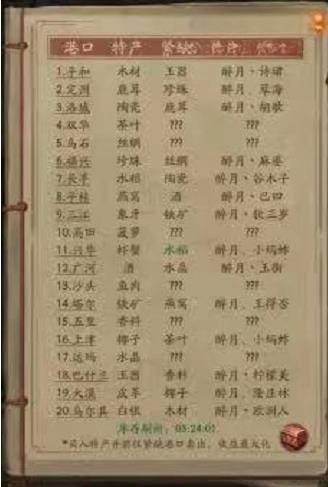 港口 特产 紧缺
1.平和 木材 玉器 醉月、诗珺
2.定洲 鹿茸 珍珠 醉月、琴海
3.洛城 陶瓷 鹿茸 醉月、胡歌
4.双华 茶叶 ??? ???
5.乌石 丝绸 ??? ???
6.福兴 珍珠 丝绸 醉月、麻婆
7.长平 水稻 陶瓷 醉月、谷木子
8.平桂 燕窝 酒 醉月、巴四
9.三江 象牙 铁矿 醉月、钦三岁
10.高田 菠萝 ??? ???
11.兴华 虾蟹 水稻 醉月、小蚂蚱
12.广河 酒 水晶 醉月、玉衡
13.沙头 鱼肉 ??? ???
14.塔尔 铁矿 燕窝 醉月、王得否
15.五里 香料 ??? ???
16.上津 椰子 茶叶 醉月、小蚂蚱
17.达玛 水晶 ??? ???
18.巴什兰 玉器 香料 醉月、柠檬美
19.大漠 皮革 椰子 醉月、隆庄林
20.乌尔其 白银 木材 醉月、欧洲人
库存刷新：03:24:01
*买入特产并前往紧缺港口卖出，收益最大化